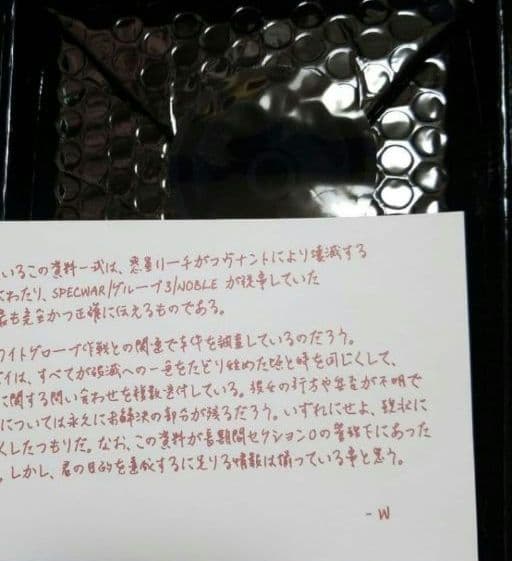 いるこの資料一式は、惑星リーチがコヴナントにより壊滅する
わたり、SPECWAR/グループ3/NOBLEが従事していた
最も完全かつ正確に伝えるものである。
ワイトグローブ作戦との関連で本件を調査しているのだろう。
イは、すべてが破滅への一途をたどり始めた頃と時を同じくして、
に関する問い合わせを複数送付している。彼女の行方や安否が不明で
については永久に未解決の部分が残るだろう。いずれにせよ、現状に
くしたつもりだ。なお、この資料が長期間セクション0の管轄下にあった
。しかし、君の目的を達成するに足りる情報は揃っている事と思う。
- W